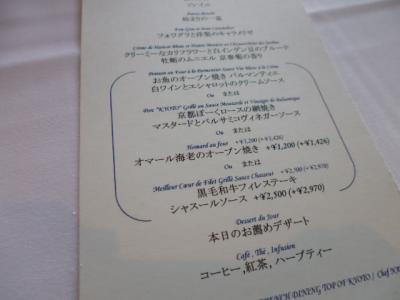 プレミエ
始まりの一皿
フォワグラと洋梨のキャラメリゼ
クリーミーなカリフラワーと白インゲン豆のブルーテ
牡蛎のムニエル 京春菊の香り
Poisson au Four à la Parmentier Sauce Vin Blanc à la Crème
お魚のオーブン焼き パルマンティエ
白ワインとエシャロットのクリームソース
Ou または
Porc "KYOTO" Grillé au Sauce Moutarde et Vinaigre de Balsamique
京都ぽーくロースの網焼き
マスタードとバルサミコヴィネガーソース
Ou または
Homard au Four +¥1,200 (+¥1,426)
オマール海老のオーブン焼き +¥1,200 (+¥1,426)
Ou または
Meilleur Cœur de Filet Grillé Sauce Chasseur +¥2,500 (+¥2,970)
黒毛和牛フィレステーキ
シャスールソース +¥2,500 (+¥2,970)
Dessert du Jour
本日のお薦めデザート
Café, Thé, Infusion
コーヒー,紅茶,ハーブティー
FRENCH DINING TOP OF KYOTO / Chef